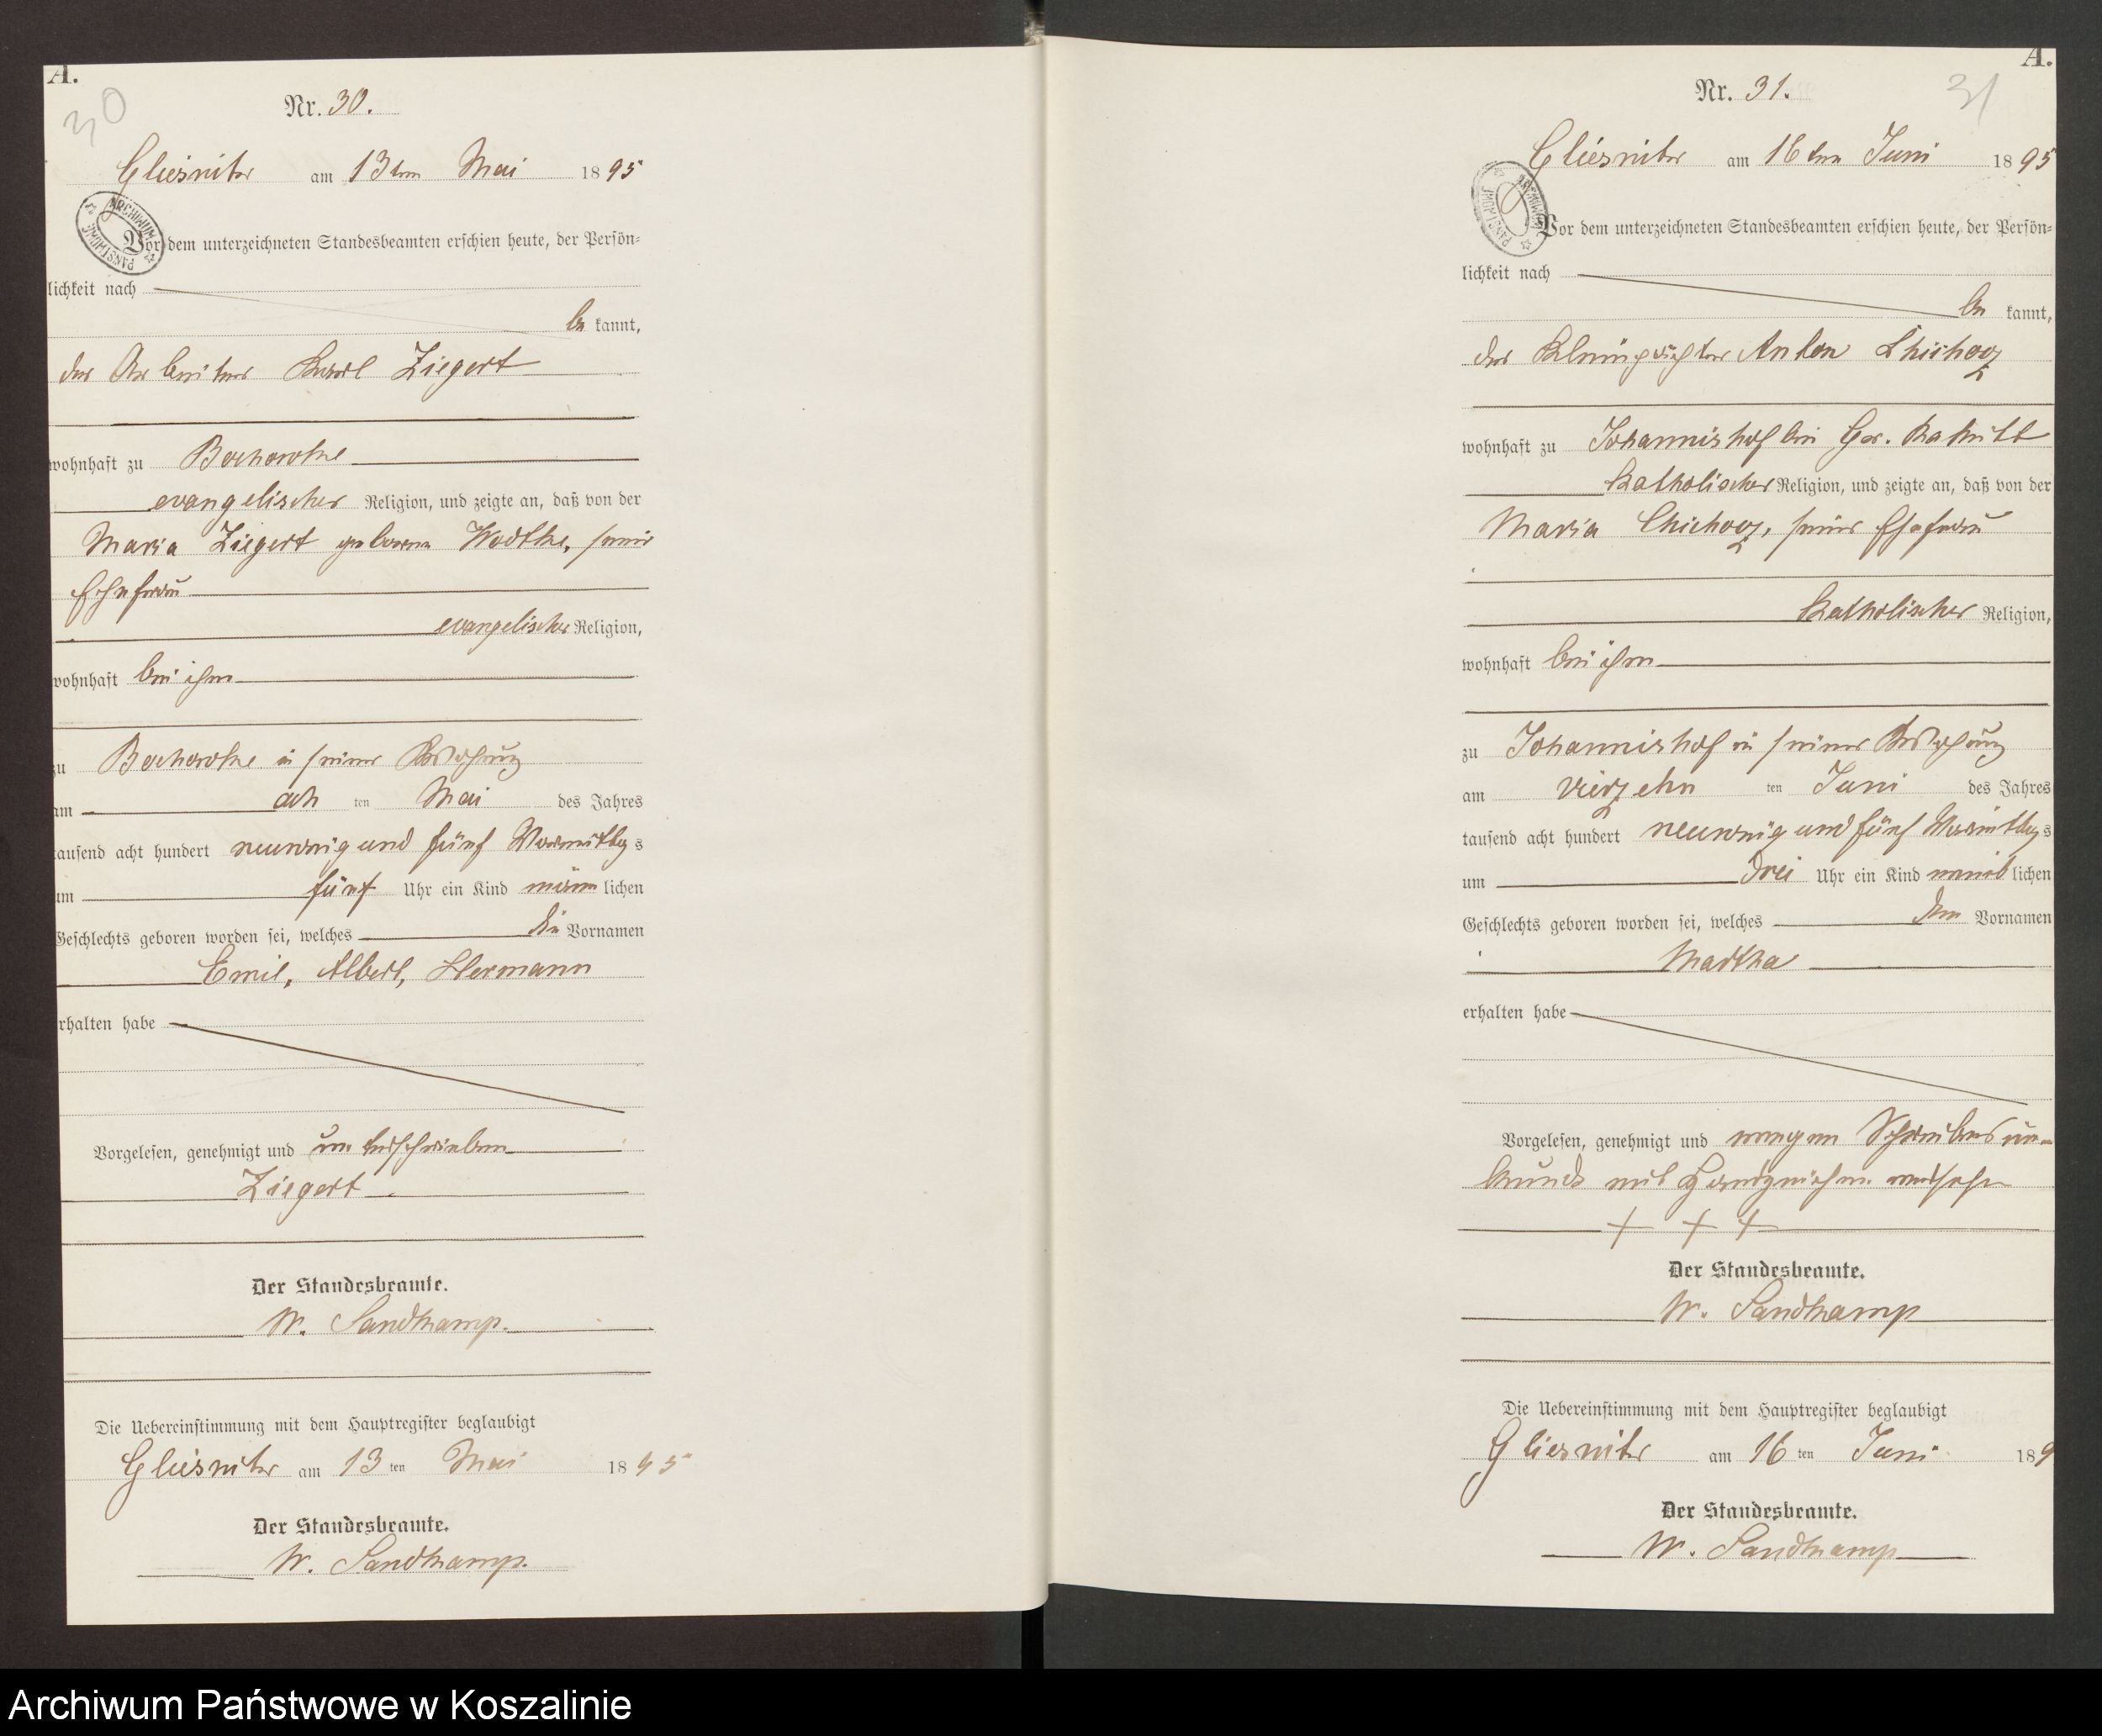 A.
30
Nr. 30.
Gliesnitz am 13ten Mai 1895
ARCHIWUM PAŃSTWOWE
Vor dem unterzeichneten Standesbeamten erschien heute, der Persön-
lichkeit nach
be kannt,
der Arbeiter Karl Ziegert
wohnhaft zu Bochowke
evangelischer Religion, und zeigte an, daß von der
Maria Ziegert geborne Wodtke, seiner
Ehefrau
evangelischer Religion,
wohnhaft bei ihm
zu Bochowke in seiner Behausung
am ach ten Mai des Jahres
tausend acht hundert neunzig und fünf Vormittags
um fünf Uhr ein Kind männlichen
Geschlechts geboren worden sei, welches die Vornamen
Emil, Albert, Hermann
erhalten habe
Vorgelesen, genehmigt und unterschrieben
Ziegert
Der Standesbeamte.
W. Sandkamp.
Die Uebereinstimmung mit dem Hauptregister beglaubigt
Gliesnitz am 13 ten Mai 1895
Der Standesbeamte.
W. Sandkamp.
A.
31
Nr. 31.
Gliesnitz am 16ten Juni 1895
ARCHIWUM PAŃSTWOWE
Vor dem unterzeichneten Standesbeamten erschien heute, der Persön-
lichkeit nach
be kannt,
der Anton
wohnhaft zu Johannishof bei Gr.
katholischer Religion, und zeigte an, daß von der
Maria seiner Ehefrau
katholischer Religion,
wohnhaft bei ihm
zu Johannishof in seiner Behausung
am vierzehn ten Juni des Jahres
tausend acht hundert neunzig und fünf Vormittags
um drei Uhr ein Kind weiblichen
Geschlechts geboren worden sei, welches den Vornamen
Martha
erhalten habe
Vorgelesen, genehmigt und wegen Schreibens un-
kunde mit Handzeichen versehen
+ + +
Der Standesbeamte.
W. Sandkamp
Die Uebereinstimmung mit dem Hauptregister beglaubigt
Gliesnitz am 16 ten Juni 189
Der Standesbeamte.
W. Sandkamp
Archiwum Państwowe w Koszalinie